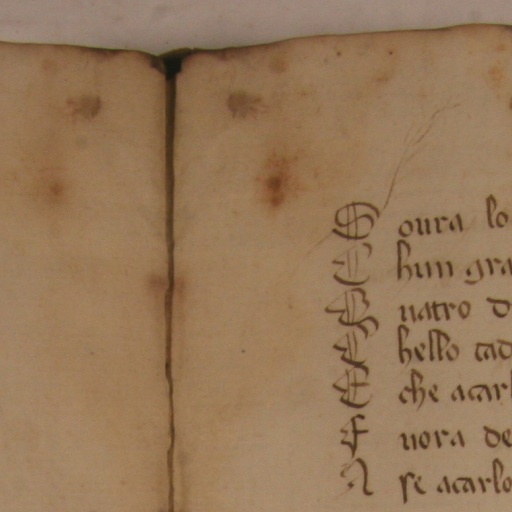 S oura lo
E hun gra
E uatro d
E hello cad
E che acarl
F uora de
A se acarlo